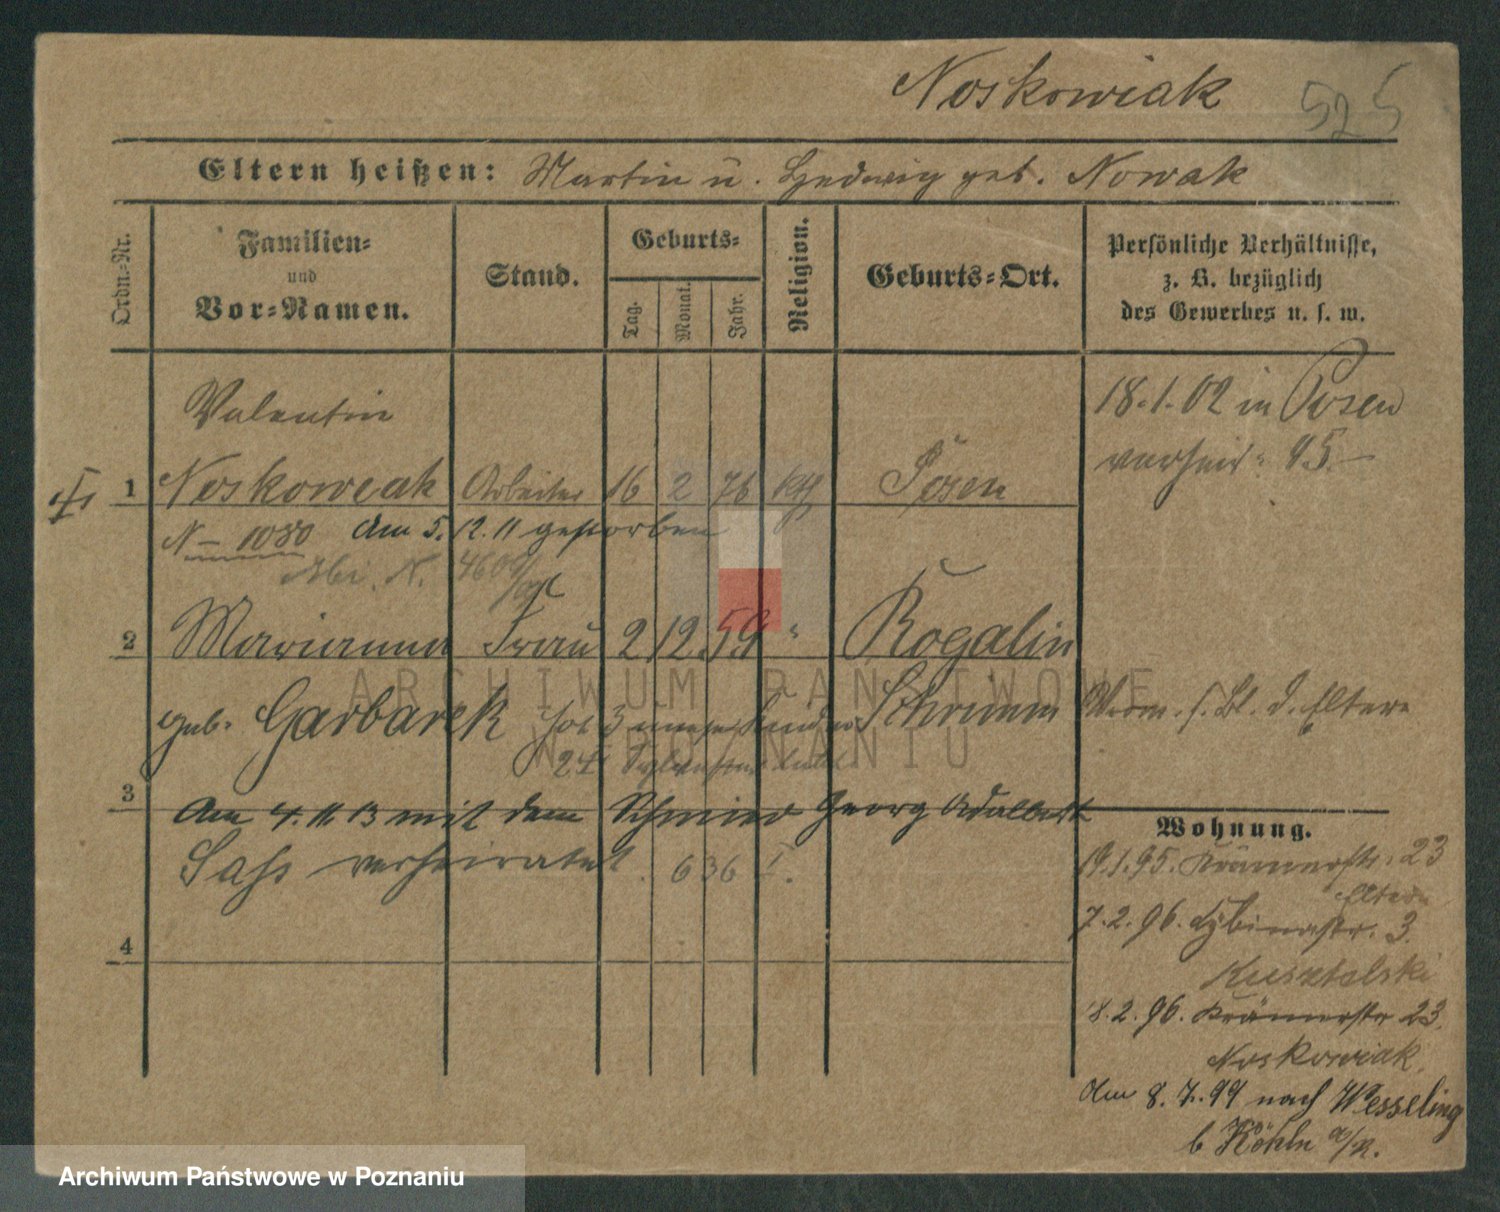 Noskowiak
525
Eltern heißen: Martin u. Hedwig geb. Nowak
Ordn=Nr.
Familien=
und
Vor=Namen.
Stand.
Geburts=
Tag.
Monat.
Jahr.
Religion.
Geburts=Ort.
Persönliche Verhältnisse,
z. B. bezüglich
des Gewerbes u. s. w.
Valentin
1 Noskowiak Arbeiter 16 2 76 kth Posen
18.1.02 in Posen
verheir. 45.
N 1080 Am 5.12.11 gestorben
N. 4609
2 Marianna Frau 2 12 59 " Rogalin
geb. Garbarek hat 3 Schrimm
Verm. s. Bl. d. Eltern
3
Am 4.11.13 mit dem Schmied Georg Adalbert
Sass verheiratet. 636 I.
4
Wohnung.
19.1.95. Krämerstr. 23
Eltern
7.2.96. 3.
Kusztelski
18.2.96. Krämerstr 23.
Noskowiak.
Am 8.7.99 nach Wesseling
b Köhln a/R.
ARCHIWUM PAŃSTWOWE
W POZNANIU
Archiwum Państwowe w Poznaniu